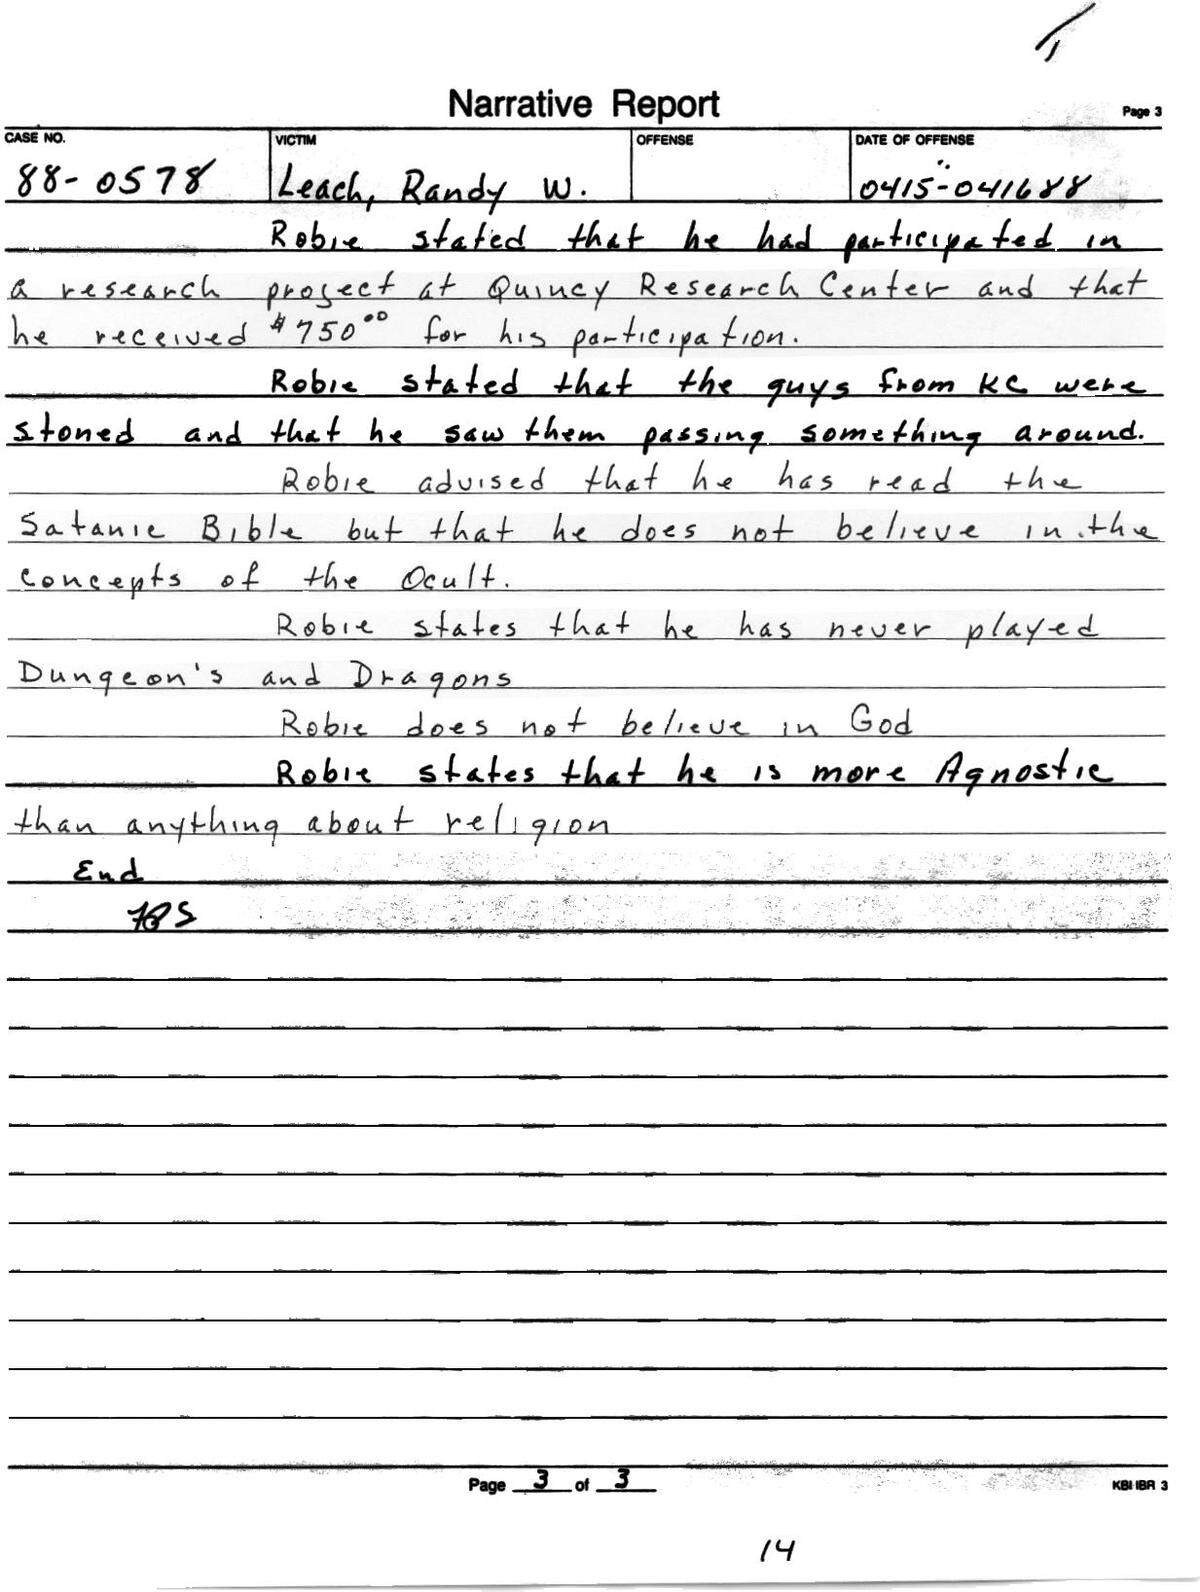 Narrative Report
Page 3
CASE NO. VICTIM OFFENSE DATE OF OFFENSE
88-0578 Leach, Randy W. 0415-041688
Robie stated that he had participated in
a research project at Quincy Research Center and that
he received $750.00 for his participation.
Robie stated that the guys from KC were
stoned and that he saw them passing something around.
Robie advised that he has read the
Satanic Bible but that he does not believe in the
concepts of the Ocult.
Robie states that he has never played
Dungeon's and Dragons
Robie does not believe in God
Robie states that he is more Agnostic
than anything about religion
End
Page 3 of 3
KBI IBR 3
14